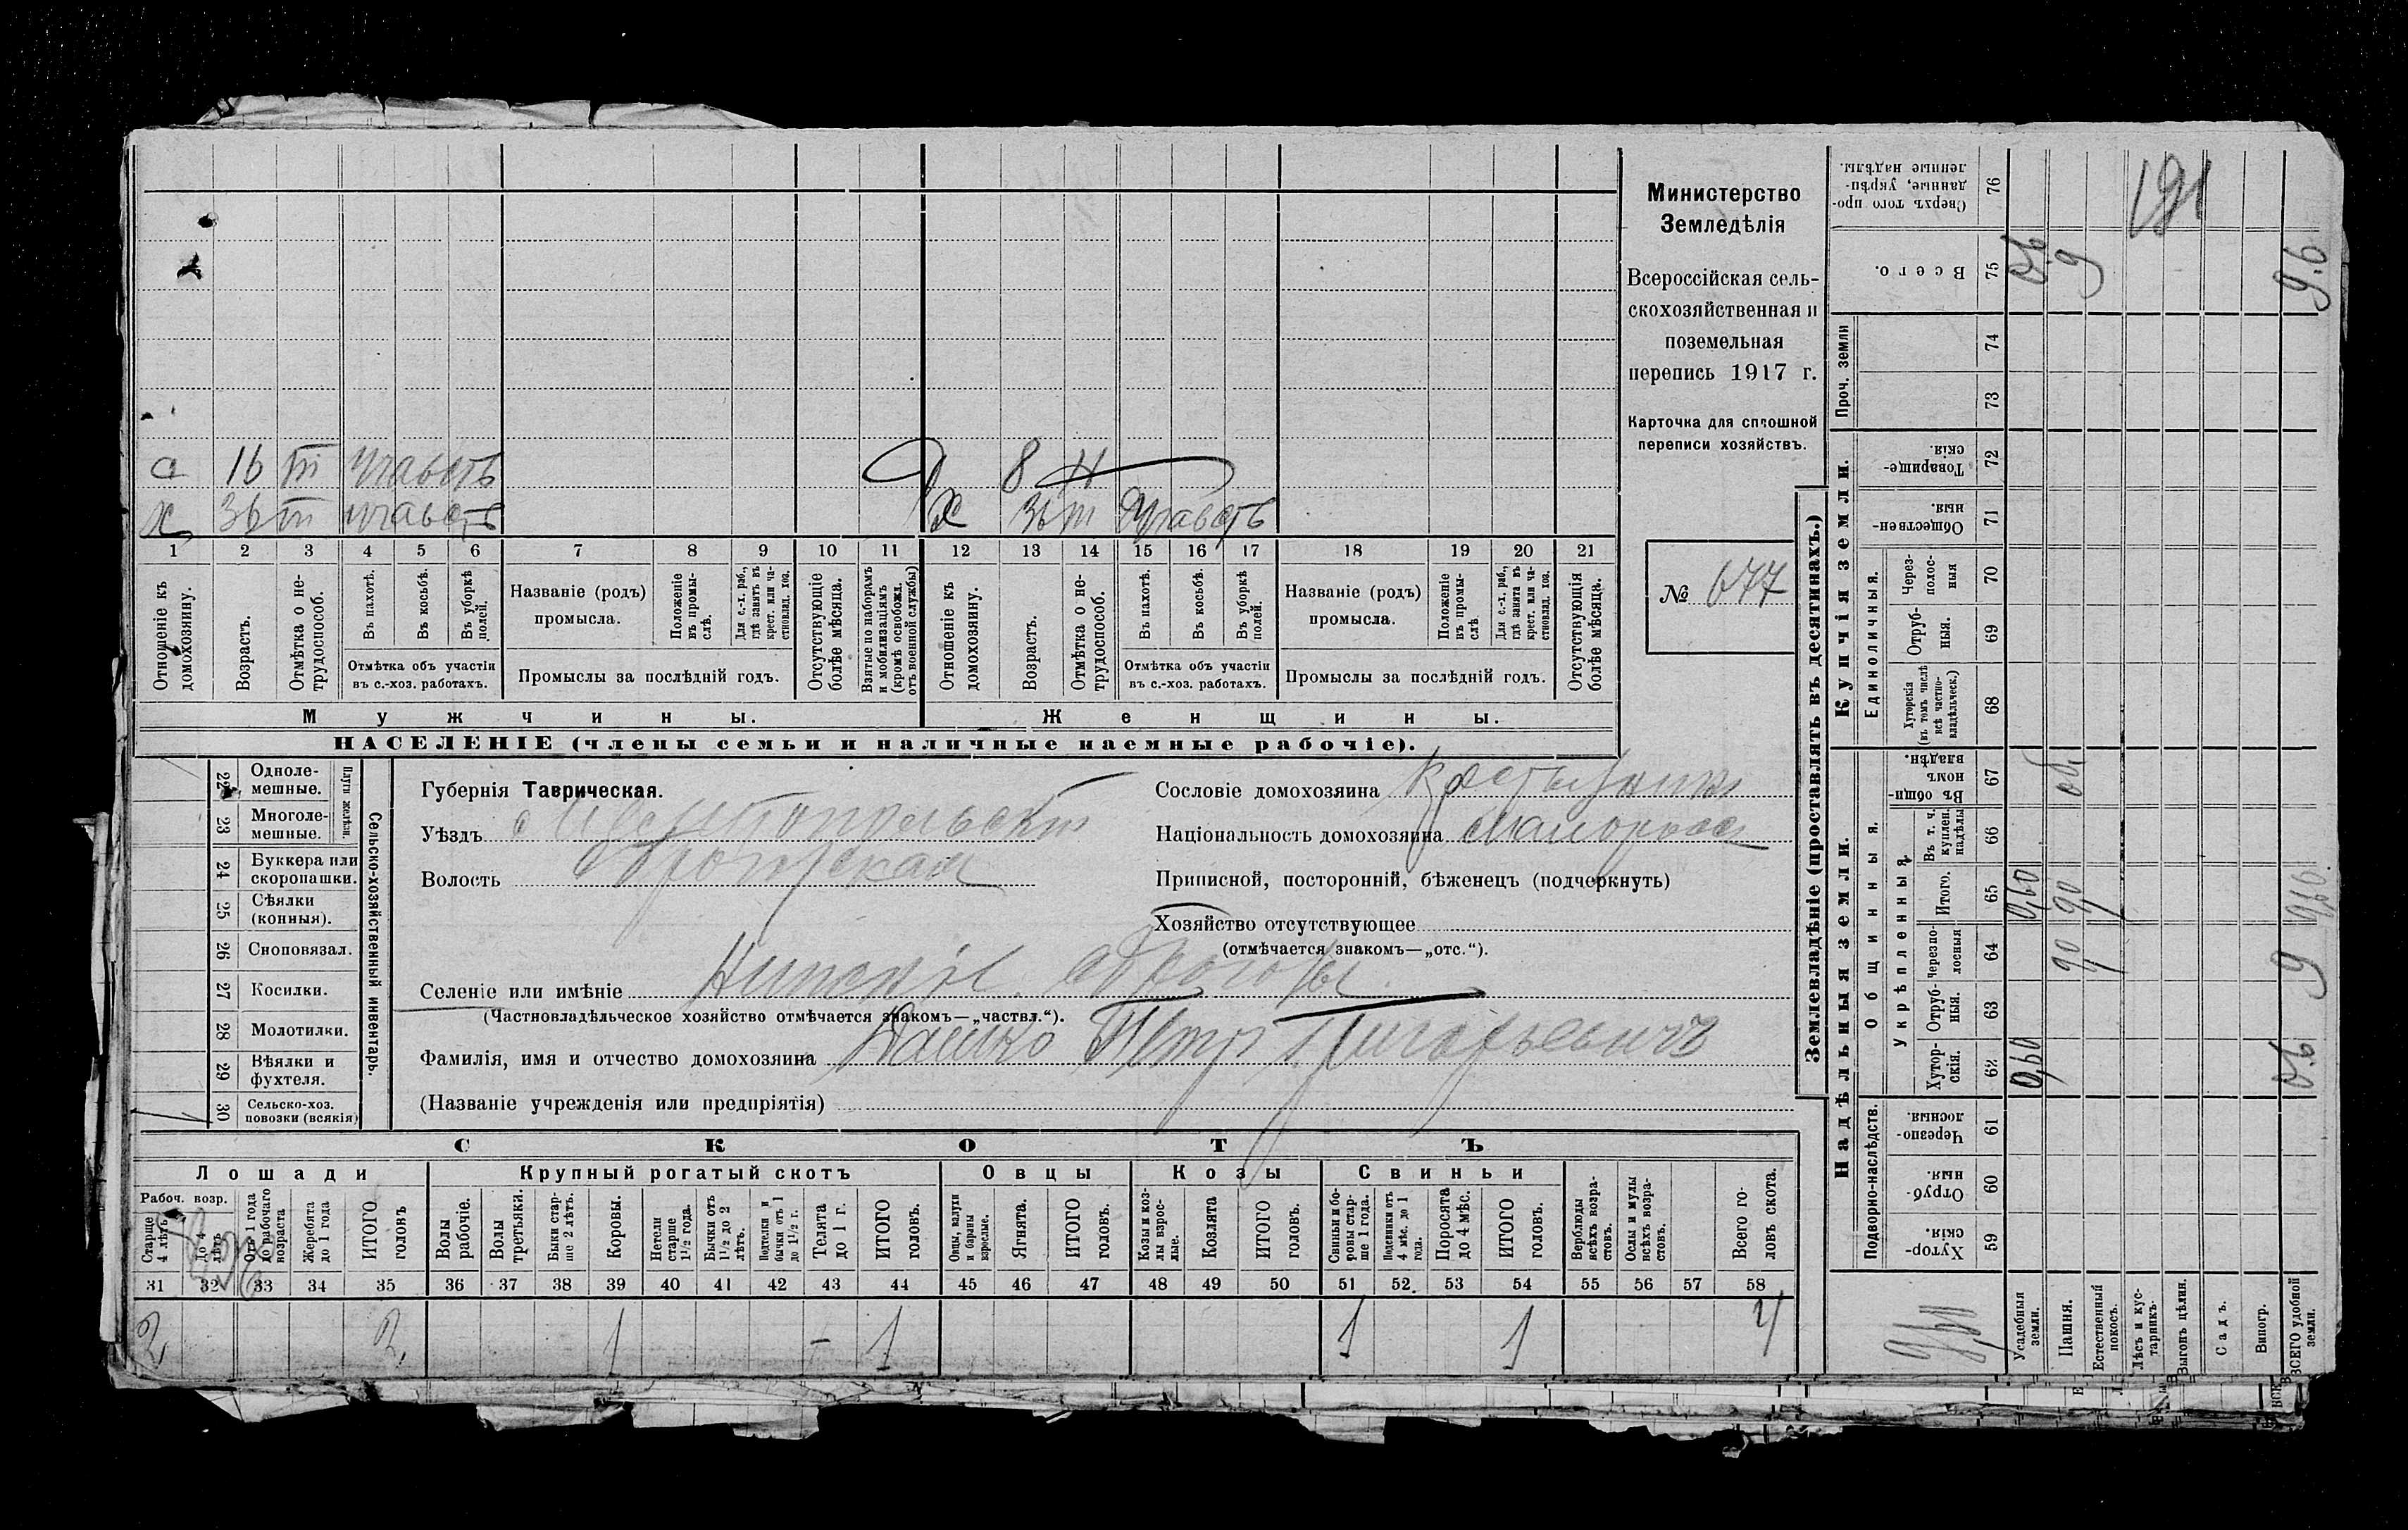 а 16 т участъ
х 36 т участъ
д 8 н
х 36 т участъ
1 2 3 4 5 6 7 8 9 10 11 12 13 14 15 16 17 18 19 20 21
Отношеніе къ домохозяину.
Возрастъ.
Отмѣтка о нетрудоспособ.
Въ пахотѣ.
Въ косьбѣ.
Въ уборкѣ полей.
Отмѣтка объ участіи
въ с.-хоз. работахъ.
Названіе (родъ)
промысла.
Положеніе въ промыслѣ.
Для с.-х. раб., гдѣ занятъ въ крест. или частновлад. хоз.
Промыслы за послѣдній годъ.
Отсутствующіе болѣе мѣсяца.
Взятые по наборамъ и мобилизаціямъ (кромѣ освобожд. отъ военной службы)
Отношеніе къ домохозяину.
Возрастъ.
Отмѣтка о нетрудоспособ.
Въ пахотѣ.
Въ косьбѣ.
Въ уборкѣ полей.
Отмѣтка объ участіи
въ с.-хоз. работахъ.
Названіе (родъ)
промысла.
Положеніе въ промыслѣ
Для с.-х. раб., гдѣ занята въ крест. или частновлад. хоз.
Промыслы за послѣдній годъ.
Отсутствующія болѣе мѣсяца.
Мужчины.
Женщины.
НАСЕЛЕНІЕ (члены семьи и наличные наемные рабочіе).
Министерство
Земледѣлія
Всероссійская сель-
скохозяйственная и
поземельная
перепись 1917 г.
Карточка для сплошной
переписи хозяйствъ.
№ 677
22 Одноле-
мешные.
23 Многоле-
мешные.
Плуги желѣзн.
24 Буккера или
скоропашки.
25 Сѣялки
(конныя).
26 Сноповязал.
27 Косилки.
28 Молотилки.
29 Вѣялки и
фухтеля.
30 Сельско-хоз.
повозки (всякія)
1
Сельско-хозяйственный инвентарь.
Губернія Таврическая.
Уѣздъ Мелитопольскій
Волость
Селеніе или имѣніе Нижніе
(Частновладѣльческое хозяйство отмѣчается знакомъ—„частвл.“).
Фамилія, имя и отчество домохозяина Петръ Григорьевичъ
(Названіе учрежденія или предпріятія)
Сословіе домохозяина Крестьянинъ
Національность домохозяина Малороссъ
Приписной, посторонній, бѣженецъ (подчеркнуть)
Хозяйство отсутствующее
(отмѣчается знакомъ—„отс.“).
СКОТЪ
Лошади
Крупный рогатый скотъ
Овцы
Козы
Свиньи
Рабоч. возр.
Старше 4 лѣтъ
До 4 лѣтъ
Отъ 1 года до рабочаго возраста
Жеребята до 1 года
ИТОГО головъ
Волы рабочіе.
Волы третьяки.
Быки старше 2 лѣтъ.
Коровы.
Нетели старше 1½ года.
Бычки отъ 1½ до 2 лѣтъ.
Подтелки и бычки отъ 1 до 1½ г.
Телята до 1 г.
ИТОГО головъ.
Овцы, валухи и бараны взрослые.
Ягнята.
ИТОГО головъ.
Козы и козлы взрослые.
Козлята
ИТОГО головъ.
Свиньи и боровы старше 1 года.
Подсвинки отъ 4 мѣс. до 1 года.
Поросята до 4 мѣс.
ИТОГО головъ.
Верблюды всѣхъ возрастовъ.
Ослы и мулы всѣхъ возрастовъ.
Всего головъ скота.
31 32 33 34 35 36 37 38 39 40 41 42 43 44 45 46 47 48 49 50 51 52. 53 54 55 56 57 58
2 2 1 – 1 1 1 4
Землевладѣніе (проставлять въ десятинахъ.)
Купчія земли.
Надѣльныя земли.
Проч. земли
Единоличныя.
Общинныя.
Укрѣпленныя
Подворно-наслѣдств.
Сверхъ того проданные, укрѣпленные надѣлы. 76
Всего. 75
74
73
Товарищескія 72
Общественныя. 71
Черезполосныя 70
Отрубныя. 69
Хуторскія (въ томъ числѣ всѣ частновладѣльческ.) 68
Въ общинномъ владѣн. 67
Въ т. ч. куплен. надѣлы 66
Итого. 65
Черезполосныя 64
Отрубныя. 63
Хуторскія. 62
Черезполосныя. 61
Отрубныя. 60
Хуторскія. 59
191
0.6
9
9.6
об.
0,60
9,0
9,60.
9,0
9
0,60
0.6
Усадебныя земли.
Пашня.
Естественный покосъ.
Лѣсъ и кустарникъ.
Выгонъ цѣлин.
Садъ.
Виногр.
ВСЕГО удобной земли.